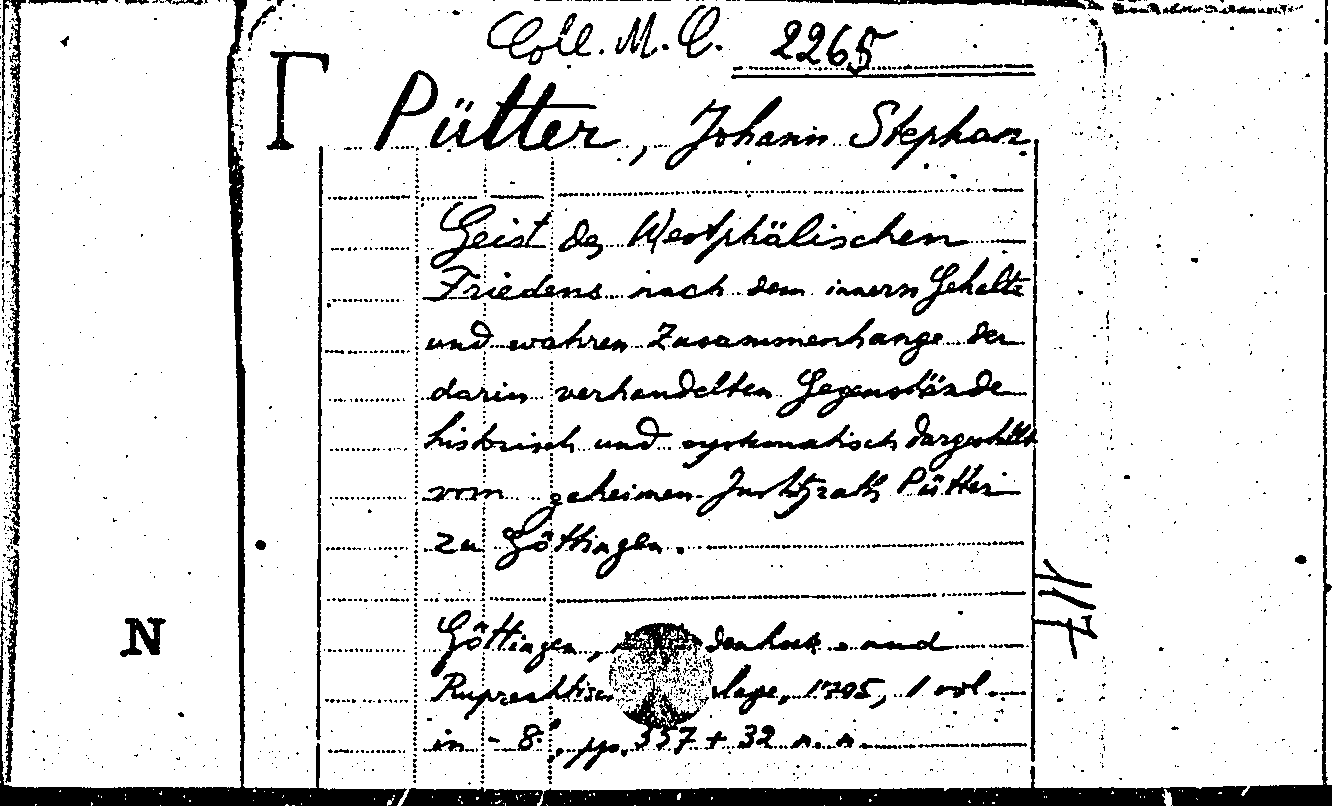 Coll. M. C. 2265
Pütter, Johann Stephan
Geist des Westphälischen
Friedens nach dem innern Gehalte
und wahren Zusammenhange der
darin verhandelten Gegenstände
historisch und systematisch dargestellt
vom geheimen Justitzrath Pütter
zu Göttingen.
Göttingen, und
Ruprechtisch 1795, 1 vol.
in - 8°, pp. 557 + 32 n. n.
N